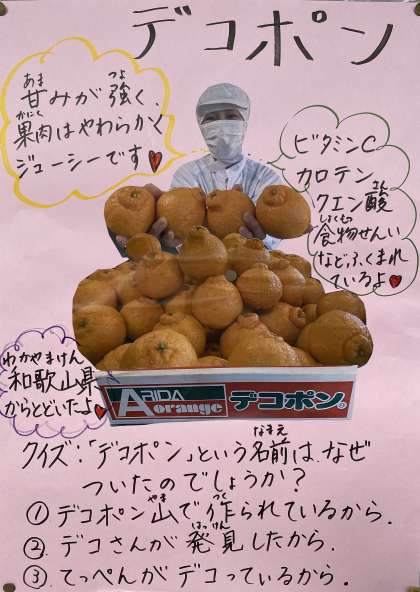 デコポン
甘みが強く、
あま
つよ
果肉はやわらかく
かにく
ジューシーです
ビタミンC
カロテン
クエン酸
さん
食物せんい
しょくもつ
などふくまれ
ているよ
わかやまけん
和歌山県
からとどいたよ
ARIDA
orange
デコポン®
クイズ:「デコポン」という名前は、なぜ
なまえ
ついたのでしょうか?
① デコポン山で作られているから。
やま
つく
② デコさんが発見したから。
はっけん
③ てっぺんがデコっているから。